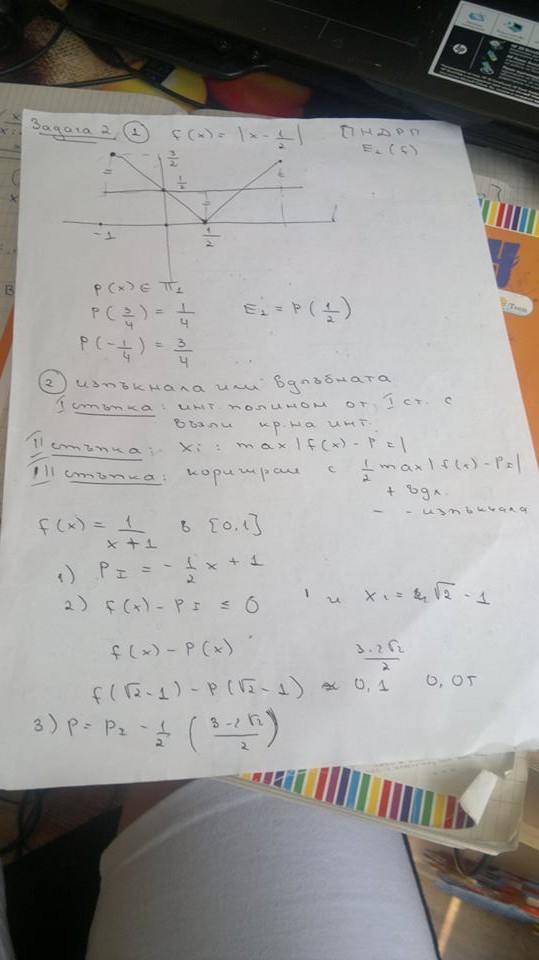 Задача 2. ① f(x) = |x - 1/2| ПНДРП
E₁(f)
3/2
1/2
-1 1/2 1
p(x) ∈ π₁
p(3/4) = 1/4 E₁ = p(1/2)
p(-1/4) = 3/4
② изпъкнала или вдлъбната
I стъпка: инт. полином от I ст. с
възли кр. на инт.
II стъпка: xᵢ: max|f(x) - P_I|
III стъпка: коригираме с 1/2 max|f(x) - P_I|
+ вдл.
- - изпъкнала
f(x) = 1/(x+1) в [0,1]
1) P_I = -1/2 x + 1
2) f(x) - P_I ≤ 0 и x₁ = √2 - 1
f(x) - P(x) (3-2√2)/2
f(√2-1) - P(√2-1) ≈ 0,1 0,05
3) P = P_I - 1/2 ((3-2√2)/2)
hp